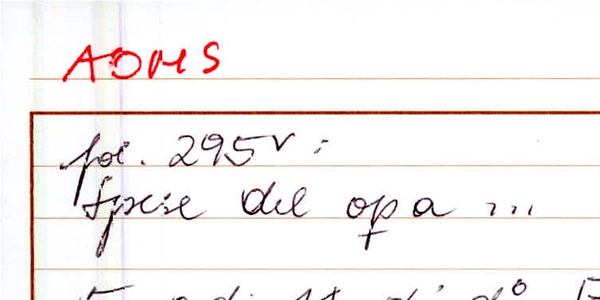 AOMS
fol. 295v:
Spese del opa ...